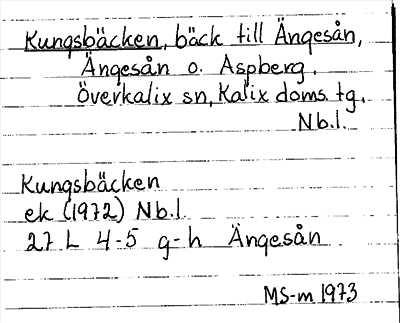 Kungsbäcken, bäck till Ängesån,
Ängesån o. Aspberg.
Överkalix sn, Kalix doms. tg.
Nb.l.
Kungsbäcken
ek (1972) Nb.l.
27 L 4-5 g-h Ängesån
MS-m 1973